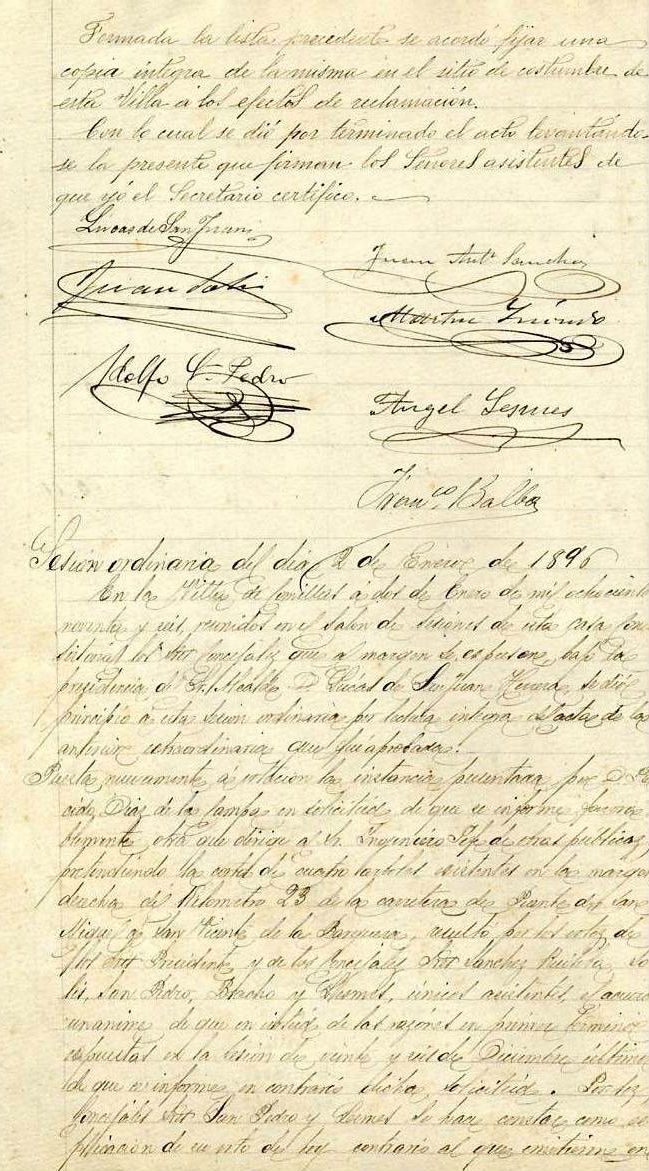 Formada la lista precedente se acordó fijar una
copia integra de la misma en el sitio de costumbre de
esta Villa á los efectos de reclamación.
Con lo cual se dió por terminado el acto levantándo-
se la presente que firman los Señores asistentes de
que yó el Secretario certifico.
Lucas de San Juan
Juan Antº Sanchez
Juan Solis
Martin
Adolfo S. Pedro
Angel Lesmes
Francº Balba
Sesión ordinaria del día 2 de Enero de 1896
En la Villa de Comillas á dos de Enero de mil ochociento
noventa y seis, reunidos en el salon de sesiones de esta casa Con
sistorial los Sres Concejales que al margen se espresan, bajo la
presidencia del Sr. Alcalde D. Lucas de San Juan Herrera, se dió
principio á esta sesion ordinaria por lectura integra del acta de la
anterior extraordinaria que fue aprobada.
Puesta nuevamente á votacion la instancia presentada por D.
Diaz de la Campa en solicitud de que se informe favora-
blemente otra que dirige al Sr. Ingeniero Jefe de obras públicas,
pretendiendo la corta de cuatro existentes en la margen
derecha del Kilometro 23 de la carretera de Puente de San
Miguel á San Vicente de la Barquera, resultó por los votos de
los Sres Presidente y de los Concejales Sres Sanchez So
lis, San Pedro, Bracho y Lesmes, únicos asistentes, el acuerdo
unanime de que en virtud de las razones en primer término
espuestas en la sesion de veinte y seis de Diciembre último
de que se informe en contrario dicha solicitud. Por los
Concejales Sres San Pedro y Lesmes se hace constar como
de su voto de hoy contrario al que emitieron en